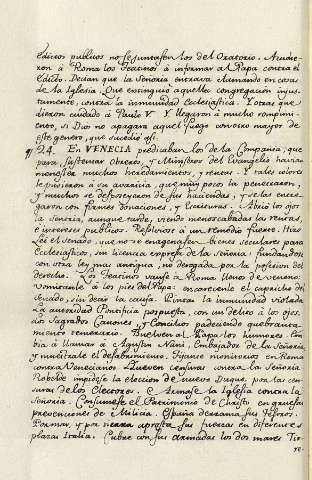 edictos publicos no se juntassen los del Oratorio. Acudie-
ron à Roma los vecinos à informar al Papa contra el
edicto. Decian que la Señoria entrava la mano en cosas
de la Iglesia. Que extinguio aquella congregacion injus-
tamente, contra la inmunidad ecclesiastica. Y otras que
dieron cuidado à Paulo V. Y llegaron à mucho rompimi-
ento, si Dios no apagara aquel fuego con otro mayor de
este genero, que sucedio assi.
¶ 24. En VENECIA predicaban los de la Compañia, que
para sustentar Obreros, y Ministros del Evangelio havian
menester muchos heredamientos, y rentas. Y tales colores
le pusieron a su avaricia, que muy pocos la penetraron,
y muchos se desposeyeron de sus haciendas, y se las entre-
garon con firmes donaciones, y Escrituras. Abrio los ojos
la Señoria, aunque tarde, viendo menoscabadas las rentas,
e intereses publicos. Resolviose à un remedio fuerte. Hizo
Lei el Senado, que no se enagenassen bienes seculares para
Ecclesiasticos, sin licencia expressa de la Señoria: fundandose
con otra ley mui antigua, no derogada por la posession del
derecho. Los Teatinos vanse à Roma lleno de veneno:
vomitanle à los pies del Papa: encarecenle el capricho del
Senado, sin decir la causa. Pintan la inmunidad violada
La autoridad Pontificia pospuesta, con un delito à los ojos.
Los Sagrados Canones, y Concilios padeciendo quebranta-
miento temerario. Buelvense al Papa los humores. Em-
bia à llamar à Agustin Nani, Embaxador de la Señoria,
y nuestrale el desabrimiento. Fijanse monitorios en Roma
contra Venecianos. Llueven censuras contra la Señoria
Rebelde impidese la eleccion de nuevo Duque. por las cen-
suras de los Electores. Armase la Iglesia contra la
Señoria. Consumese el Patrimonio de Christo en gruesas
prevenciones de Milicia. España derrama sus Tesoros.
Por mar, y por tierra apresta sus fuerzas en diferentes
plazas Italia. Cubre con sus armadas los dos mares Tir-
re-